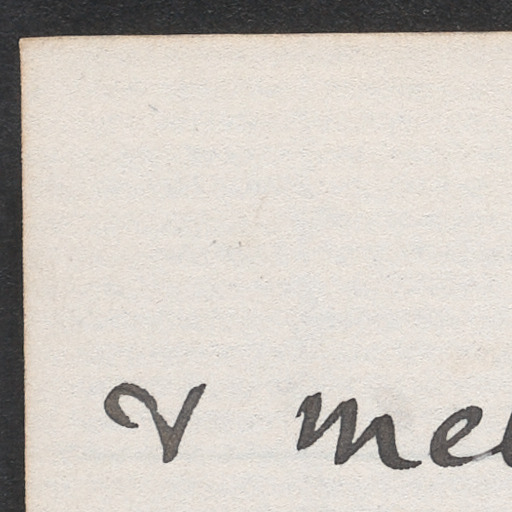 v me